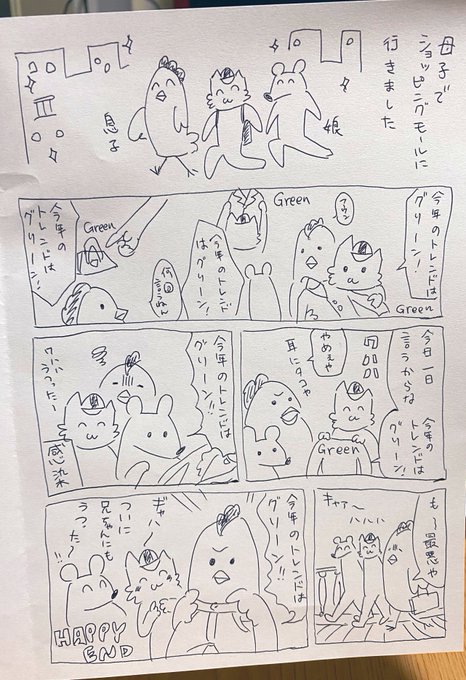 母子で
ショッピングモールに
行きました
娘
息子
今年のトレンドは
グリーン!
アウン
Green
Green
今年のトレンド
はグリーン!
何回
言うねん
Green
今年の
トレンドは
グリーン!
今日一日
言うからな
今年の
トレンドは
グリーン!
やめぇや
耳にタコや
Green
今年のトレンドは
グリーン!!
うつったー
感染
も〜最悪や
キャァ〜
ハハハハ
今年のトレンドは
グリーン!!
ギャハ〜
ついに
兄ちゃんにも
うつった〜!!
HAPPY
END